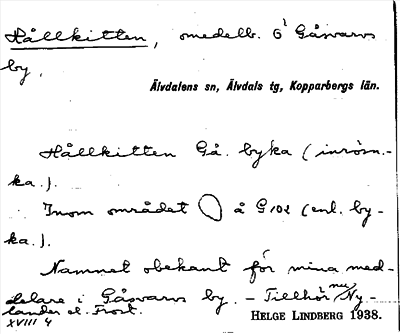 Hållkitten, omedelb. G i Gåsvarvs
by.
Älvdalens sn, Älvdals tg, Kopparbergs län.
Hållkitten Gå. byka (inrösn.-
ka.).
Inom området ◯ å G 102 (enl. by-
ka.).
Namnet obekant för mina med-
delare i Gåsvarvs by. – Tillhör nu Ny-
lander el. Frost.
XVIII 4
HELGE LINDBERG 1938.